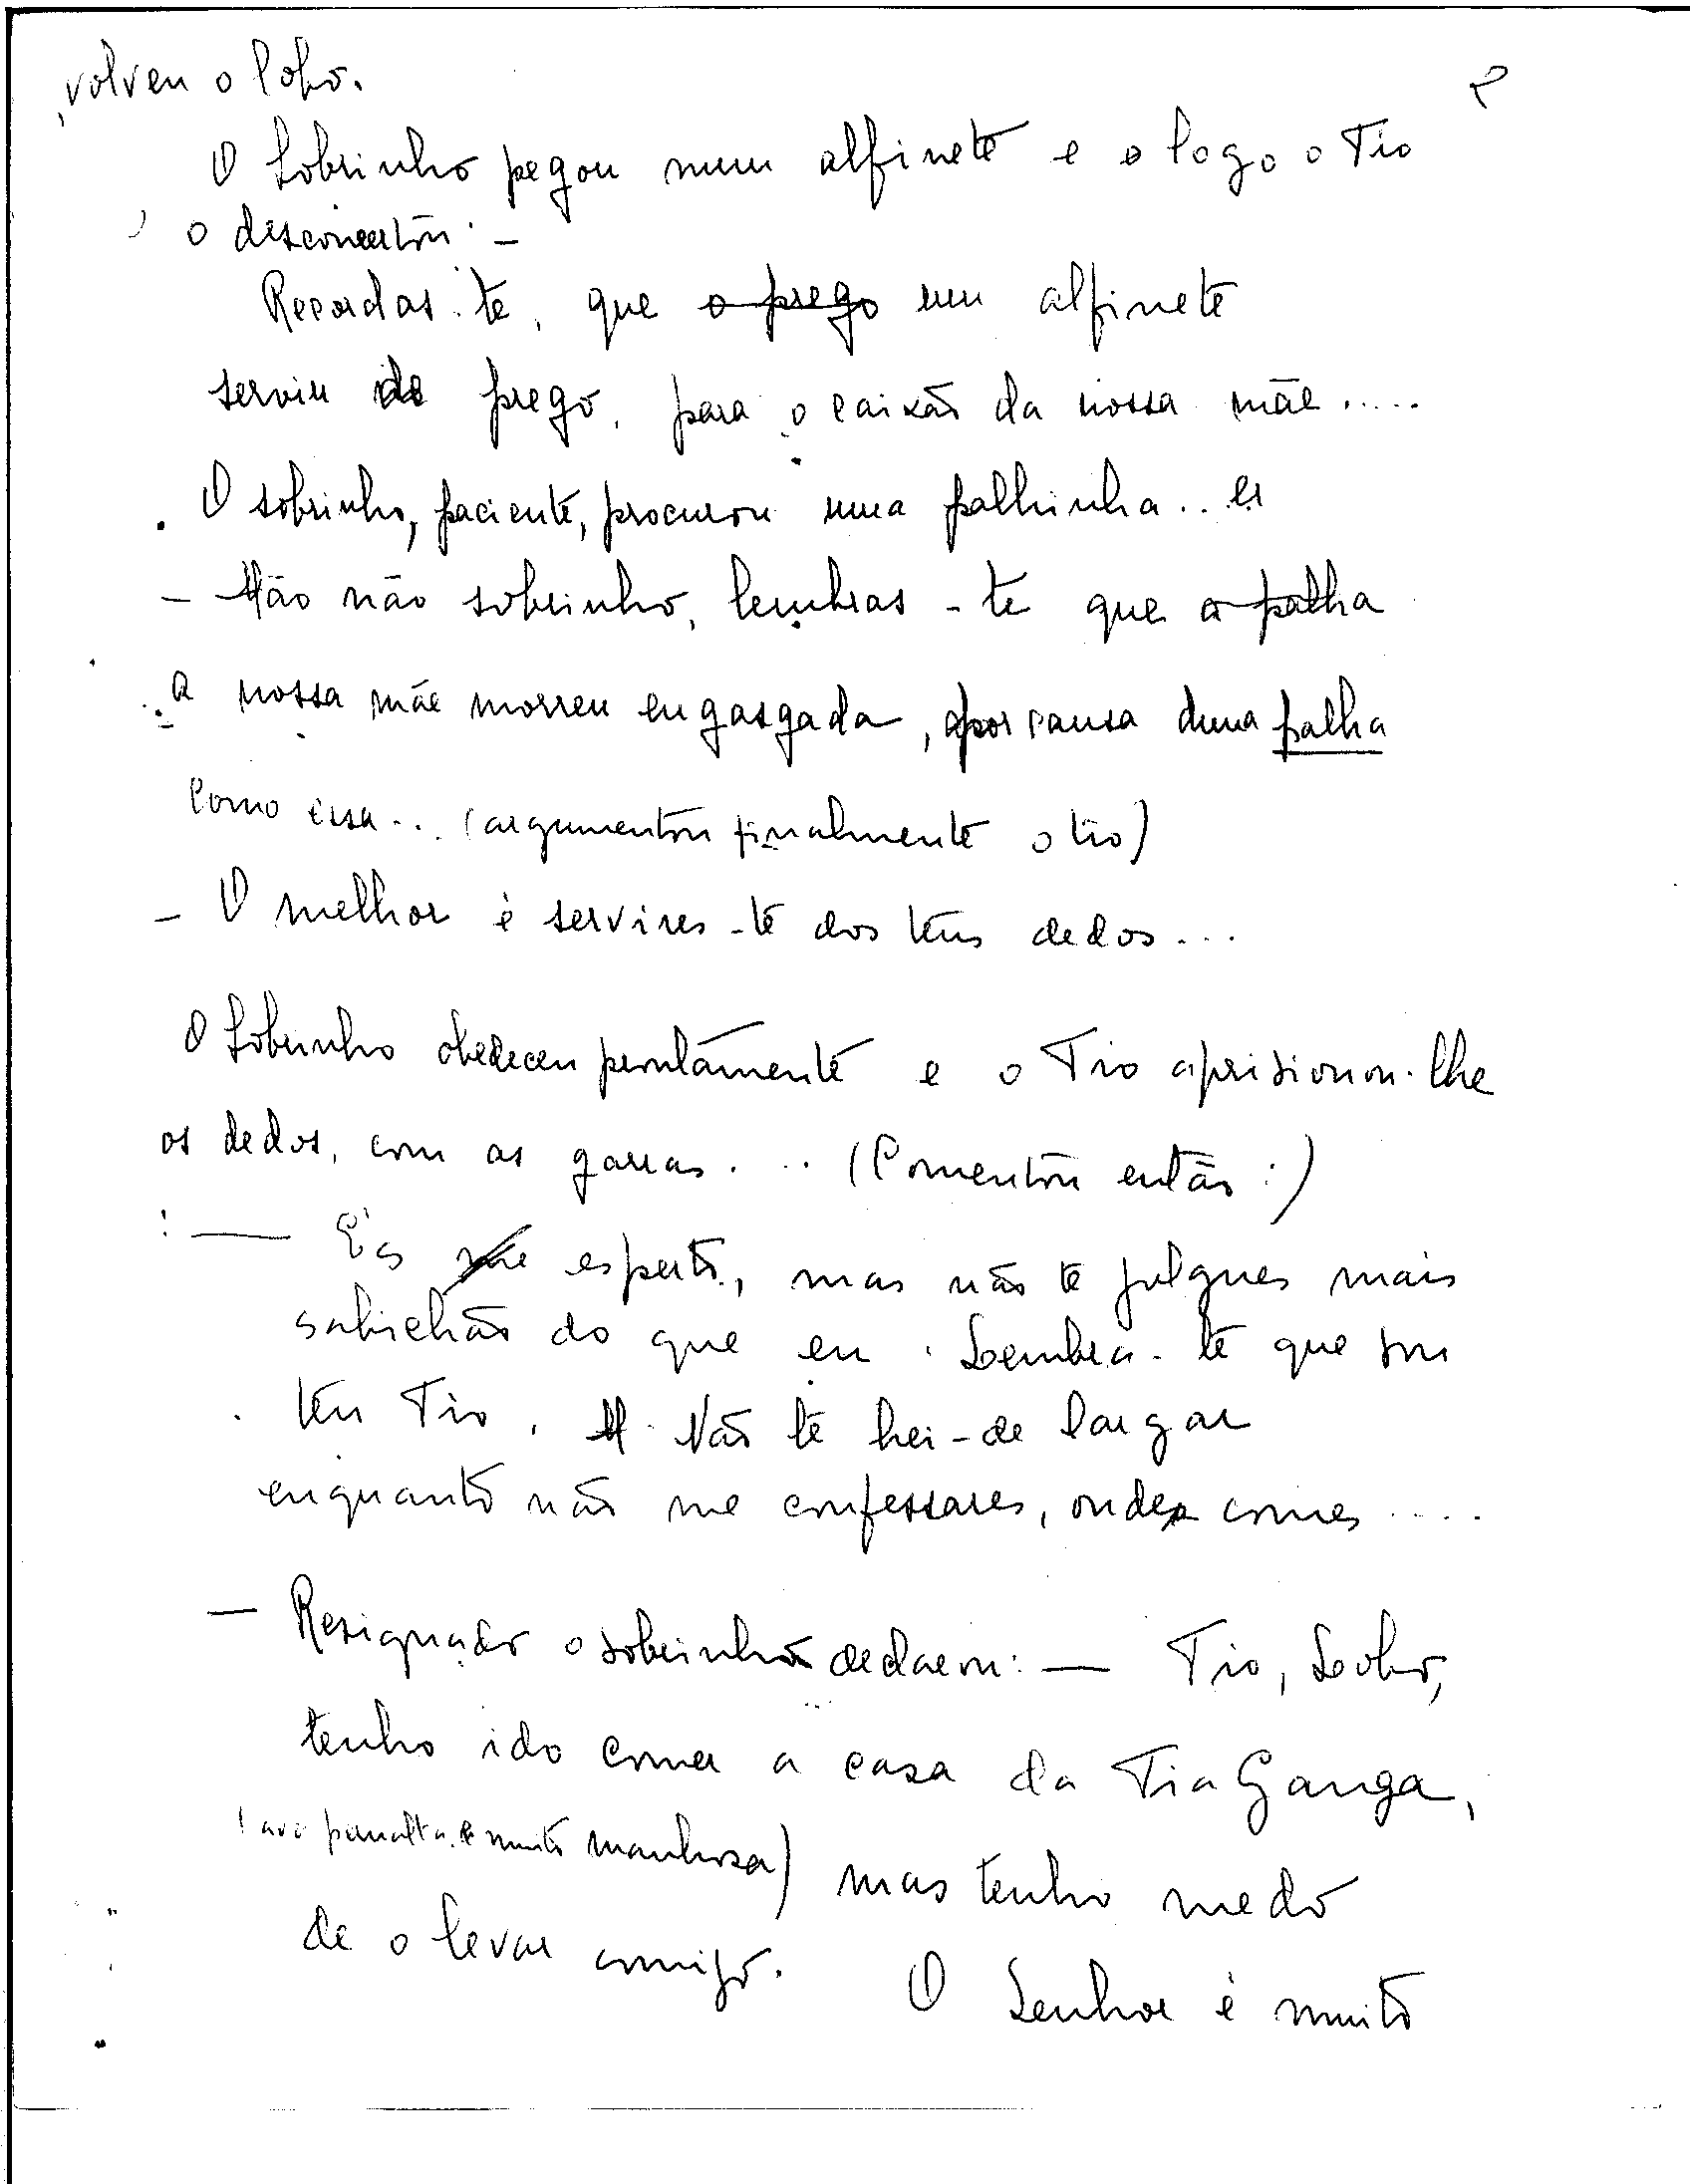 , volveu o lobo.
2
O Sobrinho pegou num alfinete e o logo o Tio
o desconcertou: -
Recordas-te, que o prego um alfinete
serviu de prego, para o caixão da nossa mãe.....
O sobrinho, paciente, procurou uma palhinha...
- Não não sobrinho, lembras-te que a palha
a nossa mãe morreu engasgada, por causa duma palha
como essa... (argumentou finalmente o tio)
- O melhor é servires-te dos teus dedos...
O Sobrinho obedeceu prontamente e o Tio aprisionou-lhe
os dedos, com as garras... (Comentou então:)
: — És esperto, mas não te julgues mais
sabichão do que eu. Lembra-te que sou
teu Tio. Não te hei-de largar
enquanto não me confessares, onde comes.....
— Resignado o sobrinho declarou: — Tio, Lobo,
tenho ido comer a casa da Tia Ganga,
(ave pernalta e muito manhosa) mas tenho medo
de o levar comigo. O Senhor é muito